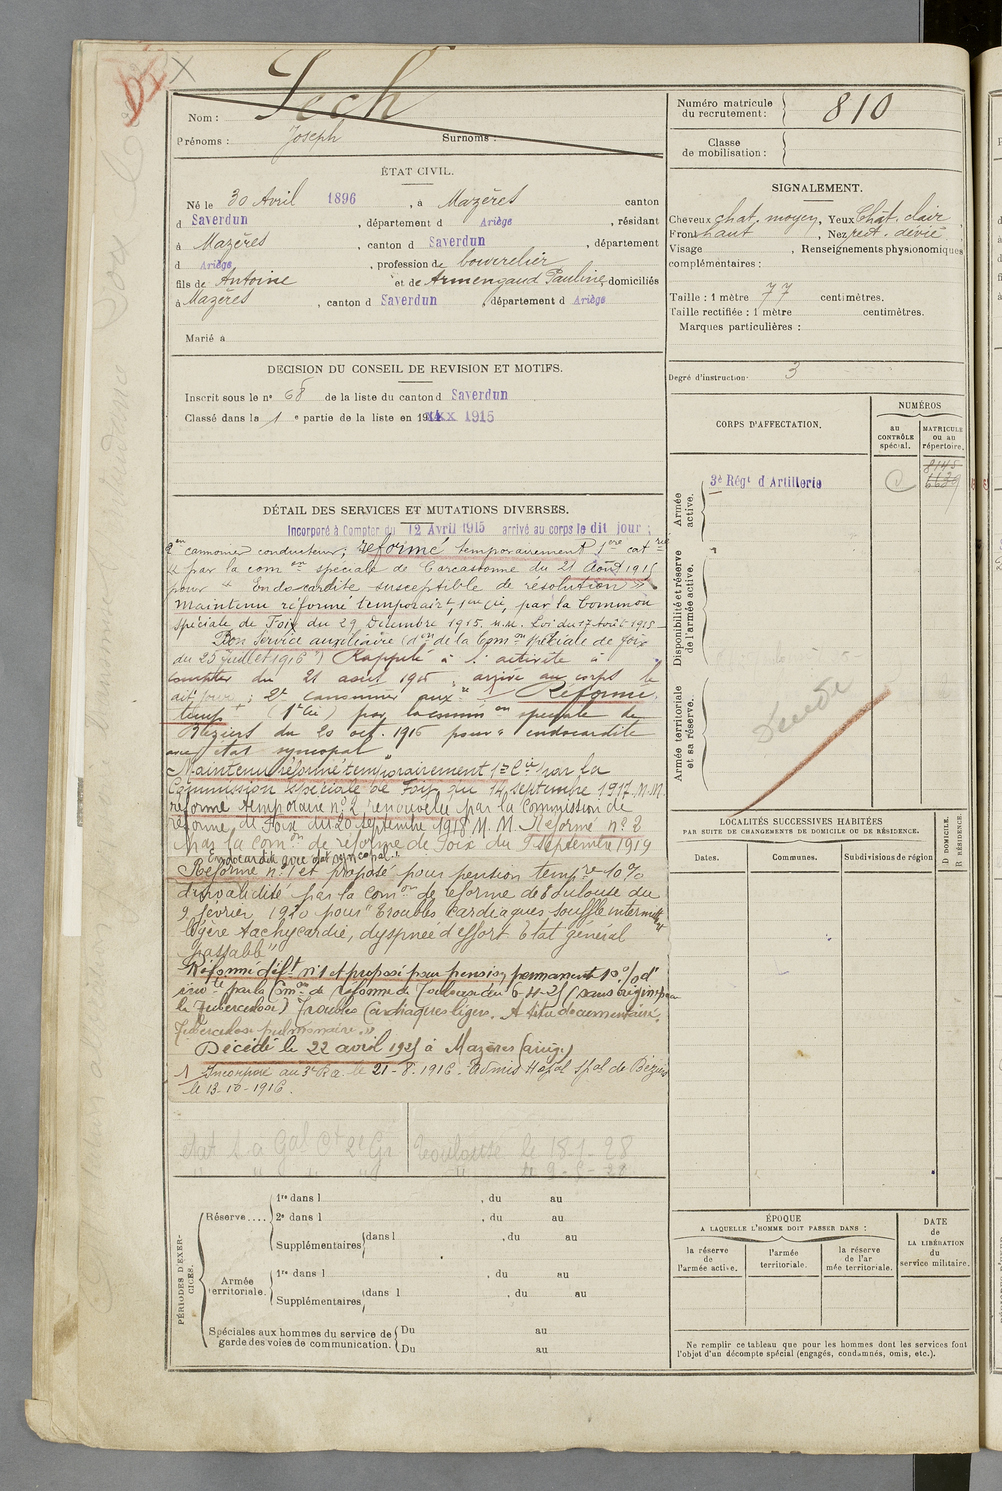 DI X
Nom : Pech
Prénoms : Joseph Surnoms :
Numéro matricule
du recrutement : 810
Classe
de mobilisation :
ÉTAT CIVIL.
Né le 30 Avril 1896, à Mazères canton
d Saverdun, département d Ariège, résidant
à Mazères, canton d Saverdun, département
d Ariège, profession de bourrelier
fils de Antoine et de Armengaud Pauline domiciliés
à Mazères, canton d Saverdun, département d Ariège
Marié à
SIGNALEMENT.
Cheveux chat. moyen, Yeux Chât. clair
Front haut, Nez rect. dévié
Visage , Renseignements physionomiques
complémentaires :
Taille : 1 mètre 77 centimètres.
Taille rectifiée : 1 mètre centimètres.
Marques particulières :
Degré d'instruction 3
DECISION DU CONSEIL DE REVISION ET MOTIFS.
Inscrit sous le nº 68 de la liste du canton d Saverdun
Classé dans la 1 e partie de la liste en 1915
DÉTAIL DES SERVICES ET MUTATIONS DIVERSES.
Incorporé à Compter du 12 Avril 1915 arrivé au corps le dit jour ;
2e canonnier conducteur ; réformé temporairement 1ère catrie
par la com on spéciale de Carcassonne du 21 Août 1915
pour « Endocardite susceptible de résolution »
Maintenu réformé temporairt, 1ère cie, par la Common
Spéciale de Foix du 29 Décembre 1915. n.m. Loi du 17 Août 1915
Bon Service auxiliaire (don de la Com on spéciale de Foix
du 25 juillet 1916) Rappelé à l'activité à
compter du 21 août 1916, arrivé au corps le
dit jour ; 2e canonnier aux re 1 Réformé
temp re (1e Cie) par la comm on spéciale de
Béziers du 20 oct. 1916 pour « endocardite
avec état syncopal »
Maintenu réformé temporairement 1re Cie par la
Commission Spéciale de Foix du 14 septembre 1917. M.M.
réforme temporaire nº 2, renouvelé par la Commission de
réforme de Foix du 20 septembre 1918 M. M. Réformé nº 2
par la Com on de réforme de Foix du 9 septembre 1919
Endocardite avec état syncopal"
Réformé nº 1 et proposé pour pension temp re 10 %
d'invalidité par la Com on de réforme de Toulouse du
9 février 1920 pour "Troubles cardiaques souffle intermitt
légère tachycardie, dyspnée d'effort Etat général
passable"
Réformé déft nº 1 et proposé pour pension permanente 10 % d'
inv té par la Com on de réforme de Toulouse du 6-11-25 (sans origine pour
la Tuberculose) Troubles Cardiaques légers. A titre documentaire.
Tuberculose pulmonaire. »
Décédé le 22 avril 1925 à Mazères (ariège)
1 Incorporé au 3e R.a. le 21-8-1916. admis Hôpal spal de Béziers
le 13-10-1916.
état S a Gal Ct 2e Gr Toulouse le 18-1-28
CORPS D'AFFECTATION.
NUMÉROS
au
CONTRÔLE
spécial.
MATRICULE
ou au
répertoire.
Armée
active.
3e Régt d'Artillerie
8145
6689
Disponibilité et réserve
de l'armée active.
Armée territoriale
et sa réserve.
Décédé
LOCALITÉS SUCCESSIVES HABITÉES
PAR SUITE DE CHANGEMENTS DE DOMICILE OU DE RÉSIDENCE.
Dates. Communes. Subdivisions de région
D DOMICILE.
R RÉSIDENCE.
ÉPOQUE
A LAQUELLE L'HOMME DOIT PASSER DANS :
la réserve
de
l'armée active.
l'armée
territoriale.
la réserve
de l'ar
mée territoriale.
DATE
de
LA LIBÉRATION
du
service militaire.
Ne remplir ce tableau que pour les hommes dont les services font
l'objet d'un décompte spécial (engagés, condamnés, omis, etc.).
PÉRIODES D'EXER-
CICES.
Réserve....
1re dans l , du au
2e dans l , du au
Supplémentaires dans l , du au
Armée
territoriale.
1re dans l , du au
Supplémentaires dans l , du au
Spéciales aux hommes du service de
garde des voies de communication.
Du au
Du au